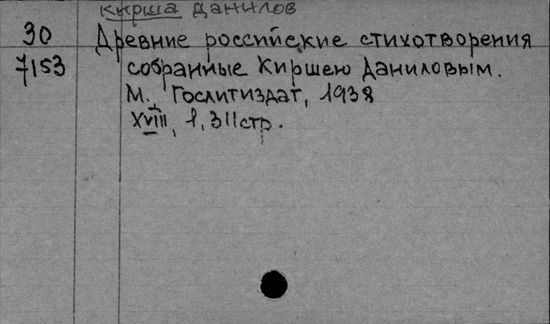 Кирша Данилов
30 Древние российские стихотворения
7153 собранные Киршею Даниловым.
М., Гослитиздат, 1938
XVIII, 1, 311 стр.